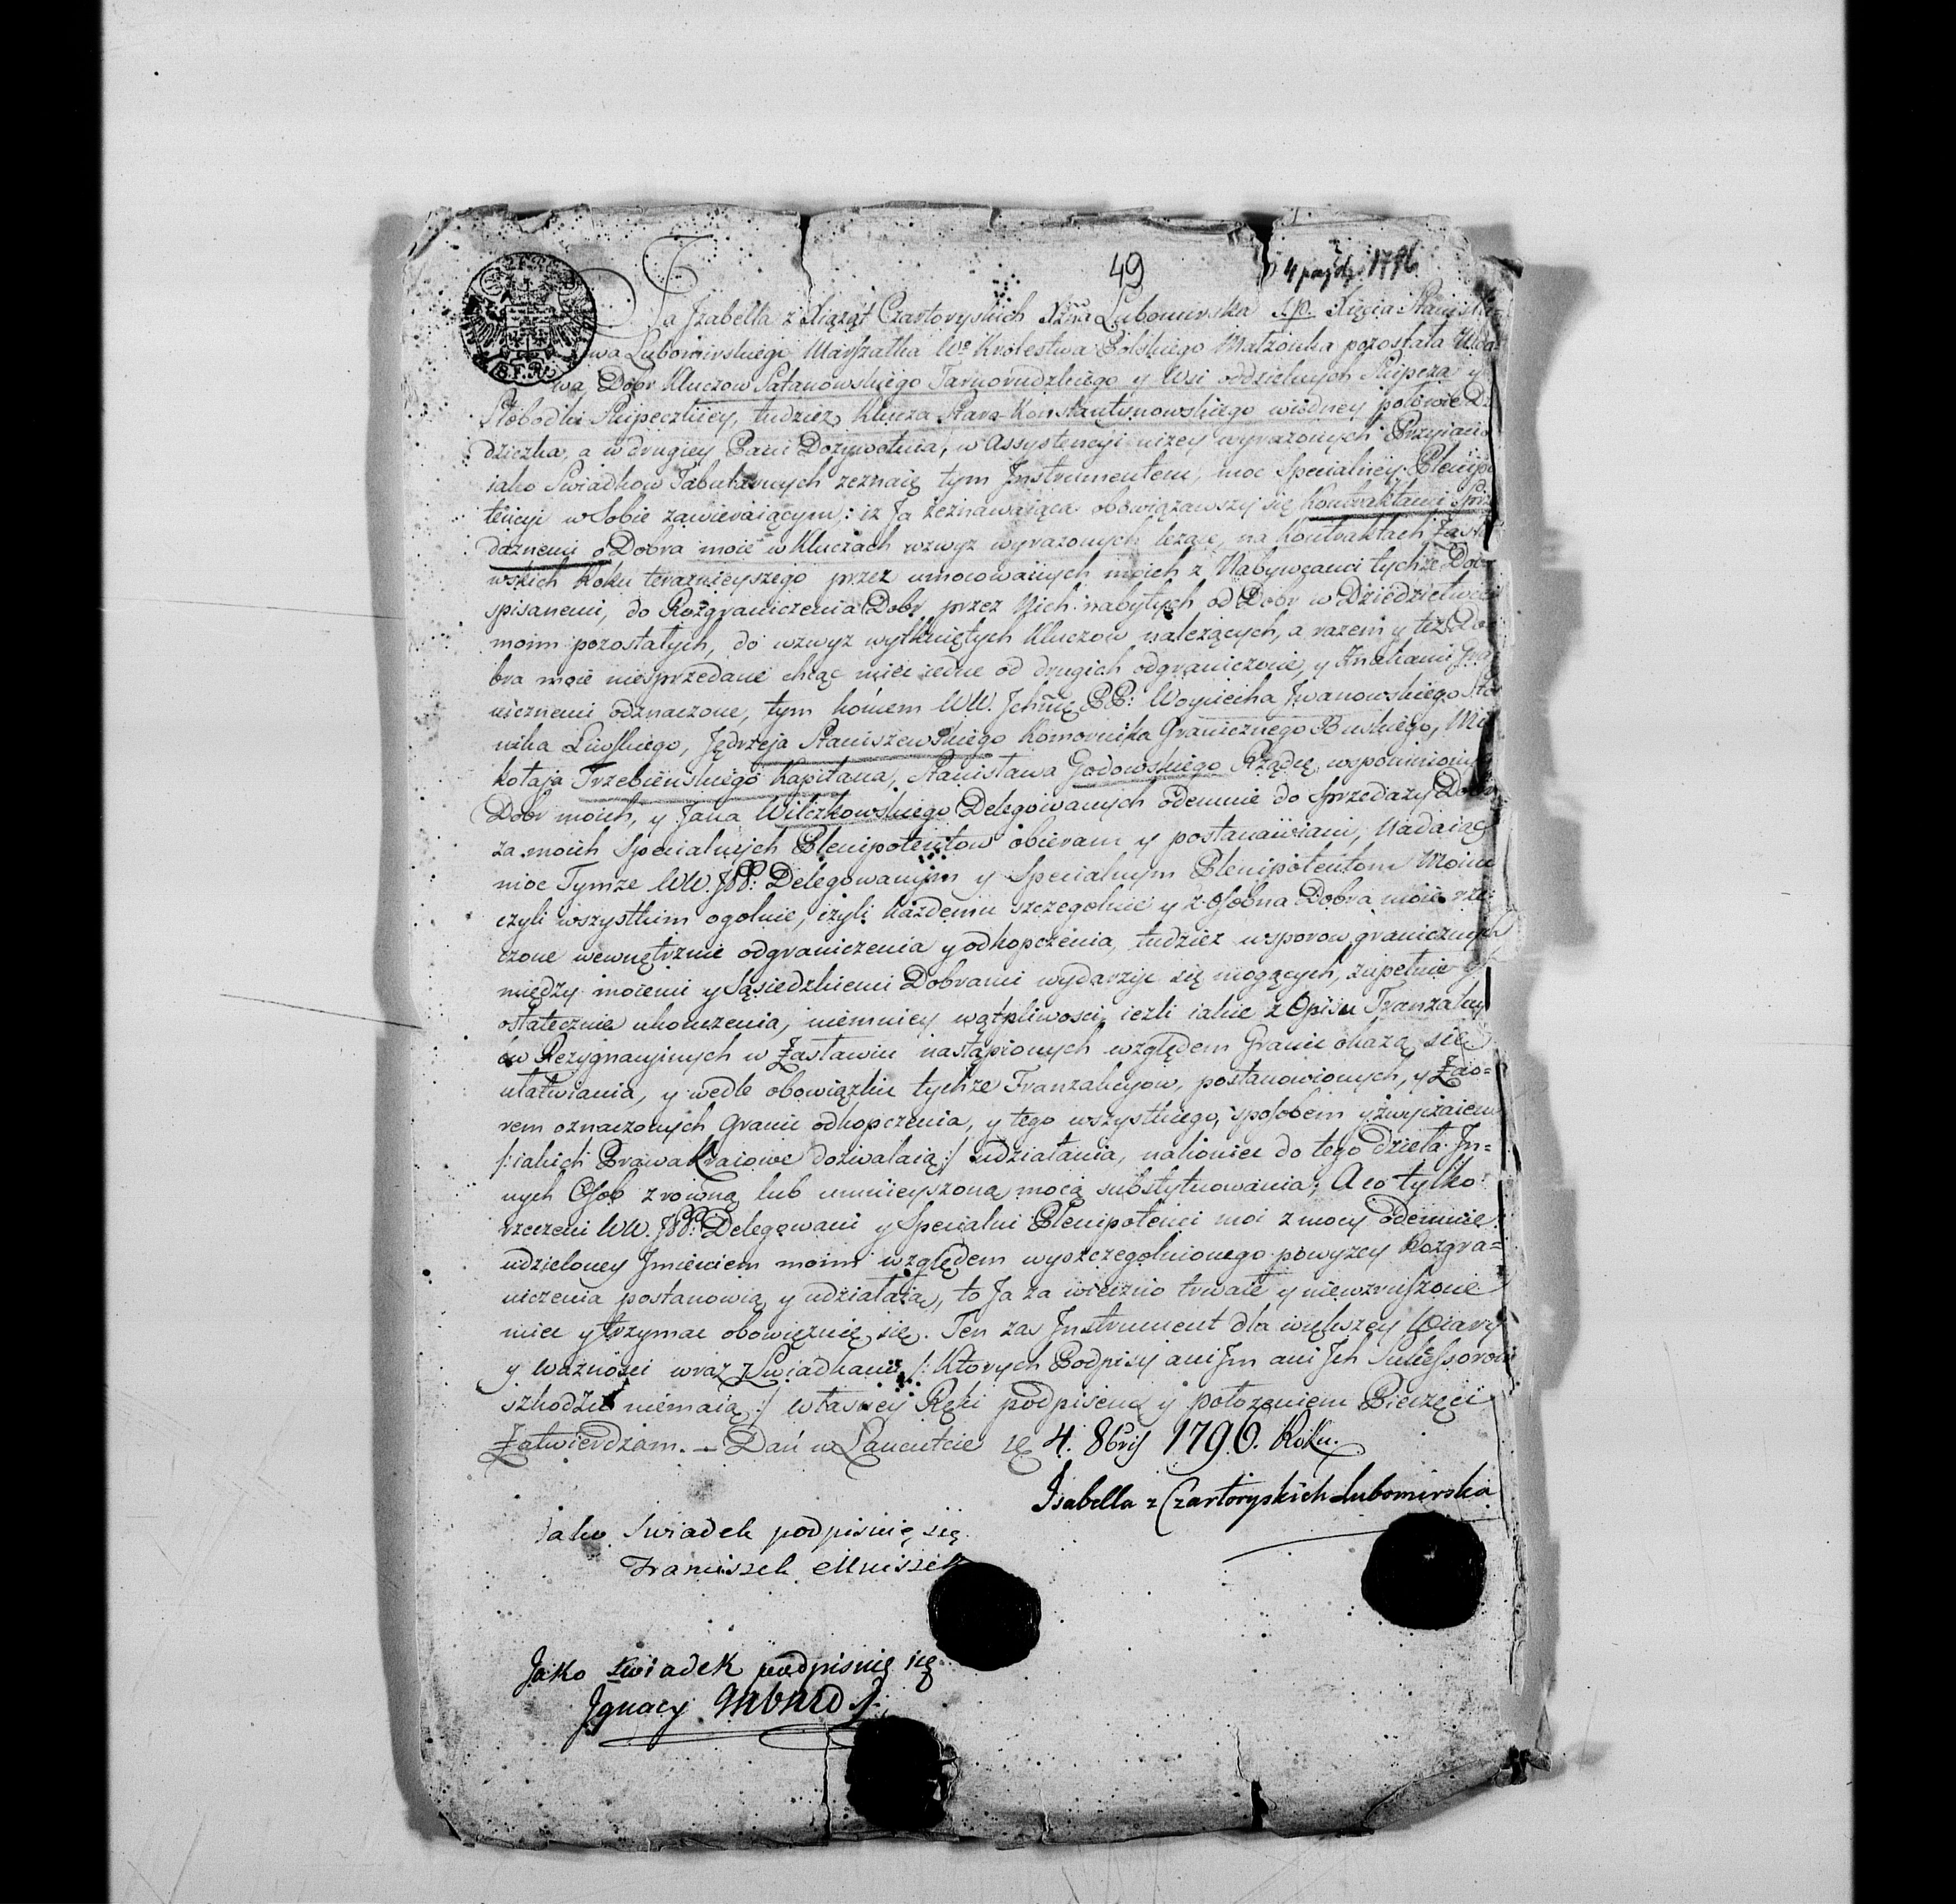 49
4 paźdz. 1796
Ja Izabella z Xiążąt Czartoryskich Xżna Lubomirska ś.p. Xięcia Stanisła-
wa Lubomirskiego Marszałka Wo Krolestwa Polskiego Małżonka pozostała Wdo-
wa Dobr Kluczow Satanowskiego Tarnorudzkiego y Wsi oddzielnych
Słobodki, tudzież Klucza Staro-Konstantynowskiego w iedney połowie Dzie-
dziczka, a w drugiey Pani Dożywotnia, w Assystencyi niżey wyrażonych Przyiacioł
iako Swiadkow Tabularnych zeznaię tym Instrumentem, moc Specialney Plenipo-
tencyi w Sobie zawieraiącym: iż Ja zeznawaiąca obowiązawszy się Kontraktami Sprze-
dażnemi o Dobra moie w Kluczach wzwyż wyrażonych leżące, na Kontraktach Zasła-
wskich Roku teraznieyszego przez umocowanych moich z Nabywcami tychże Dobr
spisanemi, do Rozgraniczenia Dobr przez Nich nabytych od Dobr w Dziedzictwie
moim pozostałych, do wzwyż wytkniętych Kluczow należących, a razem y też Do-
bra moie niesprzedane chcąc mieć iedne od drugich odgraniczone, y Znakami Gra-
nicznemi odznaczone, tym końcem WW. Ichmć PP: Woyciecha Iwanowskiego
Liwskiego, Jędrzeja Staniszewskiego Komornika Granicznego Buskiego, Mi-
kołaja Trzebieńskiego Kapitana, Stanisława Godowskiego Rządcę wspomnionych
Dobr moich, y Jana Wilczkowskiego Delegowanych odemnie do Sprzedaży Dobr
za moich Specialnych Plenipotentow obieram y postanawiam, Nadaiąc
moc Tymże WW. JPP: Delegowanym y Specialnym Plenipotentom Moim
czyli wszystkim ogolnie, czyli każdemu szczegolnie y z osobna Dobra moie rze-
czone wewnętrznie odgraniczenia y odkopczenia, tudzież w sporow granicznych
między moiemi y Sąsiedzkiemi Dobrami wydarzyc się mogących, zupełnie y
ostatecznie ukończenia, niemniey wątpliwosci, ieżli iakie z Opisu Tranzakcy-
ow Rezygnacyinych w Zasławiu nastąpionych względem Granic okażą się
ułatwiania, y wedle obowiązku tychże Tranzakcyow, postanowionych, y Zao-
rem oznaczonych Granic odkopczenia, y tego wszystkiego, sposobem y zwyczaiem
/:iakich Prawa Kraiowe dozwalaią:/ udziałania, nakoniec do tego dzieła In-
nych Osob z rowną lub umnieyszoną mocą substytuowania; A co tylko
rzeczeni WW. JPP: Delegowani y Specialni Plenipotenci moi z mocy odemnie
udzieloney Imieniem moim względem wyszczegolnionego powyżey Rozgra-
niczenia postanowią y udziałaią, to Ja za wieczno trwałe y niewzruszone
mieć y trzymac obowięzuię się. Ten zas Instrument dla większey Wiary
y ważności wraz z Swiadkami /: Ktorych Podpisy ani Im ani Ich Sukcessorom
szkodzić niemaią :/ własney Ręki podpisem y położeniem Pieczęci
Zatwierdzam. – Dań w Lancucie d 4. 8bris 1796. Roku.
Isabella z Czartoryskich Lubomirska
Jako Swiadek podpisuię się
Franciszek Mniszek
Jako swiadek podpisuię się
Ignacy